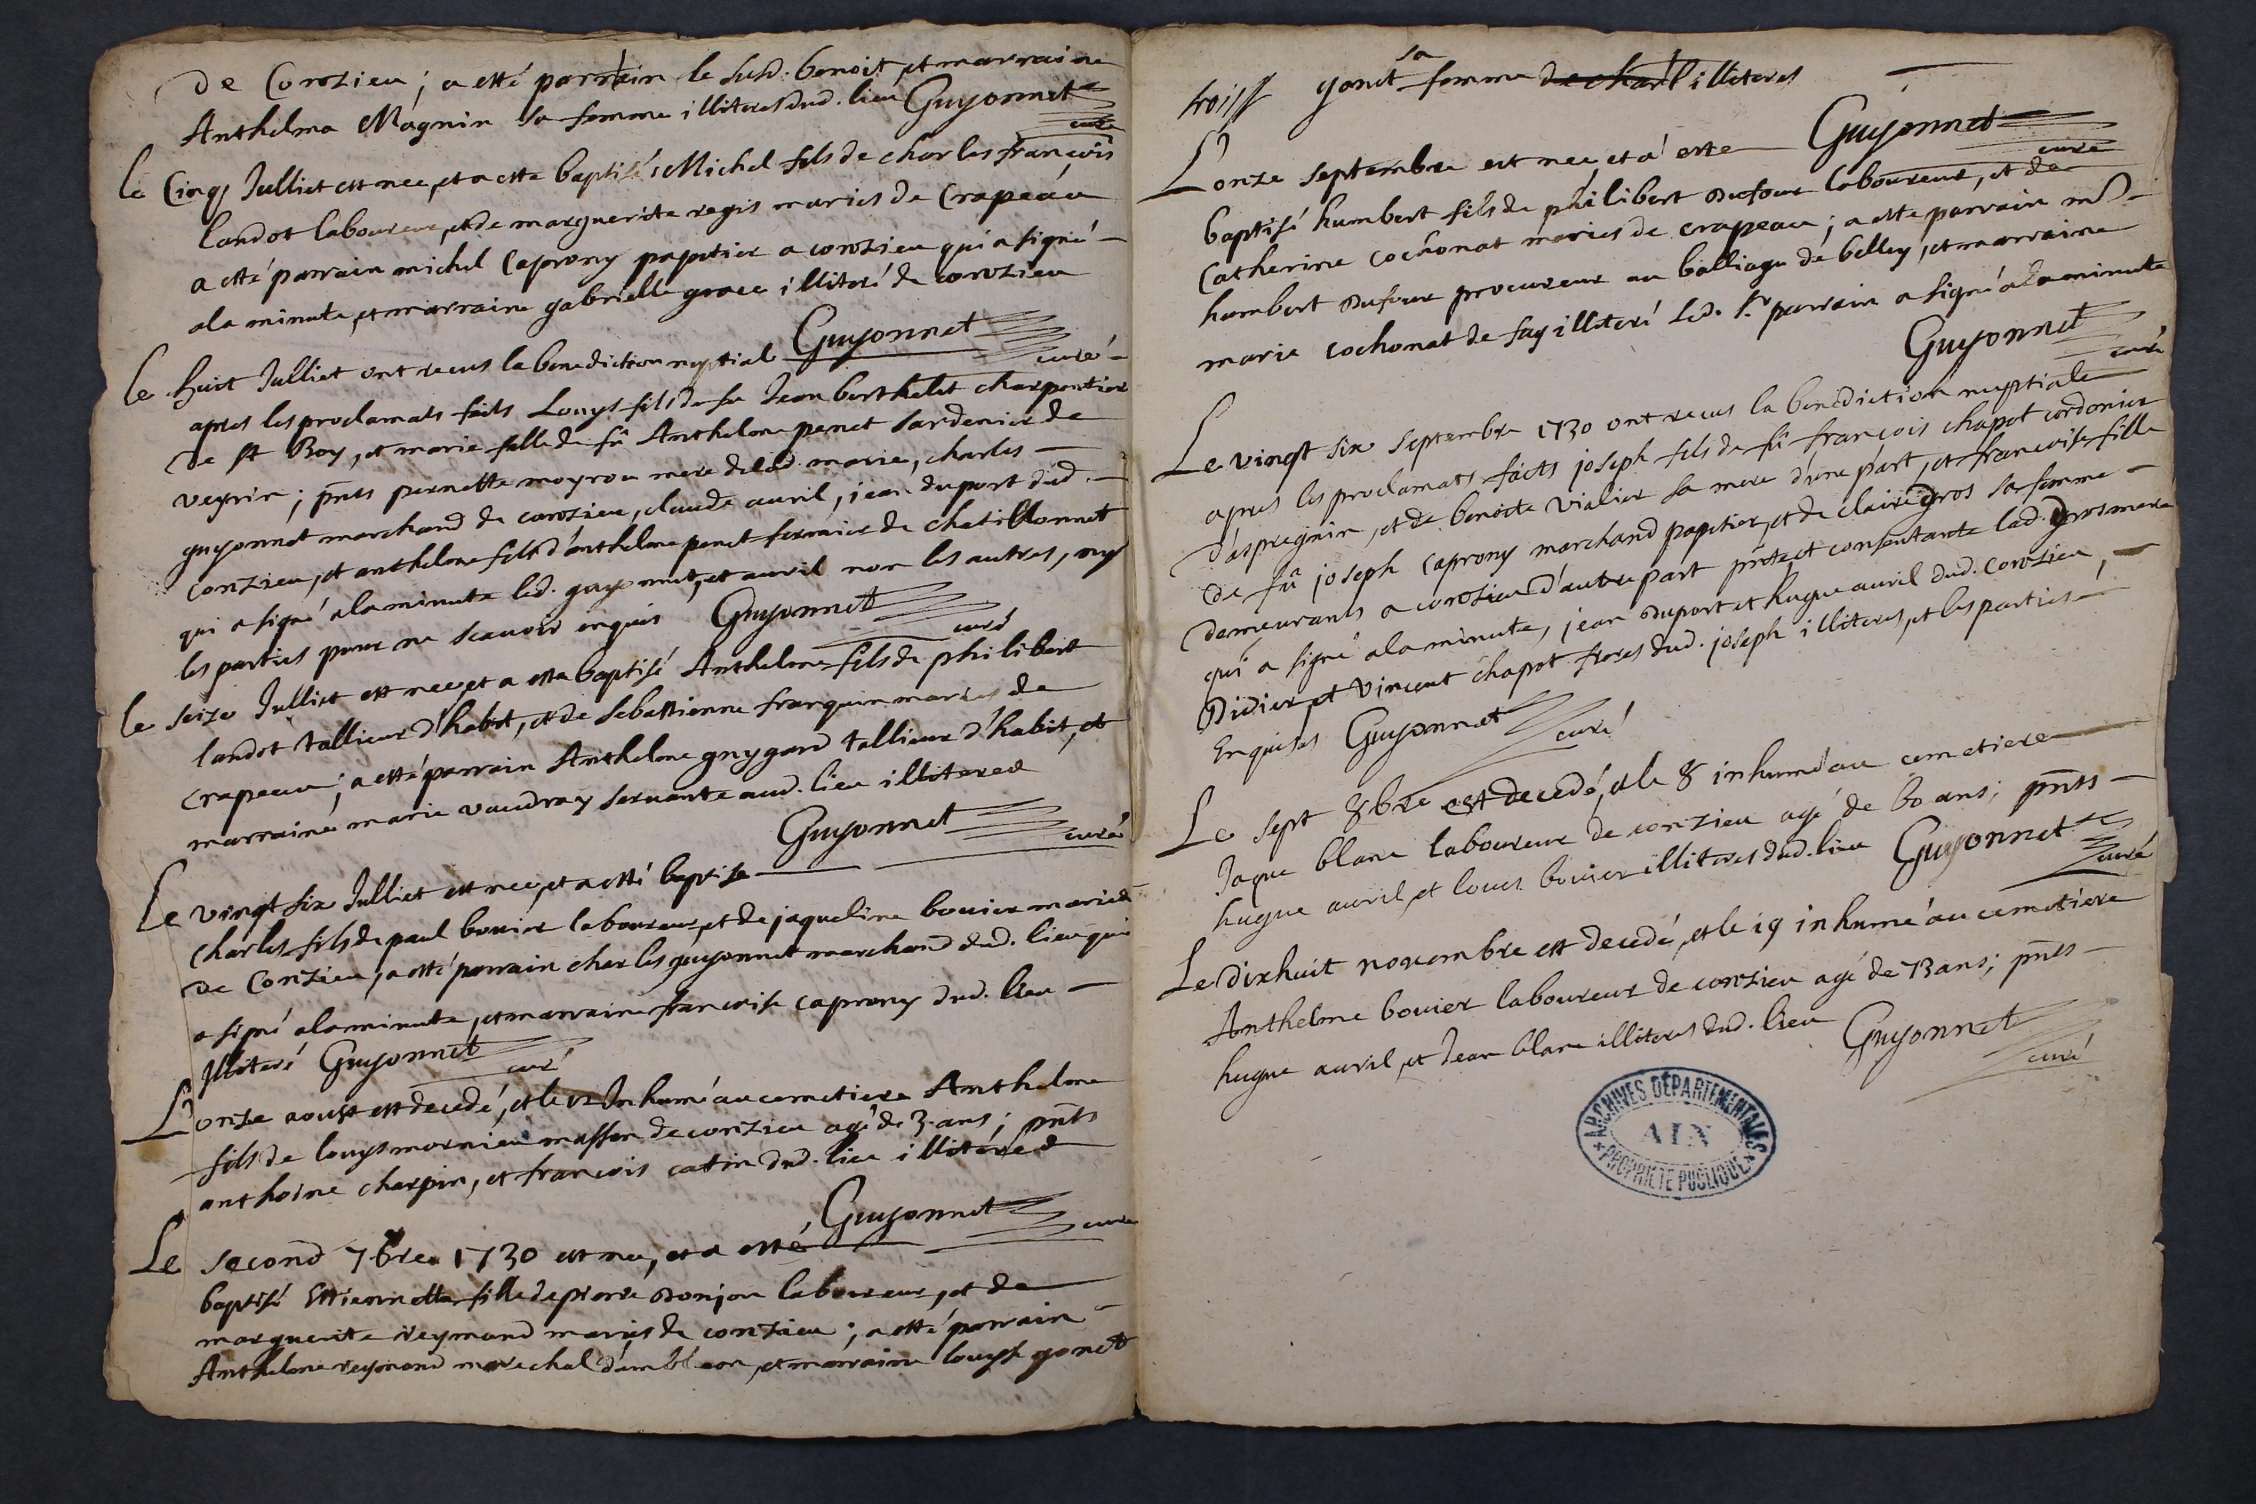 de Conzieu ; a etté parrain le susd. benoit, et marraine
Anthelma Magnin sa femme illiteres dud. lieu Guyonnet
curé
le Cinq Julliet est nee, et a este baptisé Michel fils de charles françois
landot laboureur, et de marguerite regis maries de Crapeau
a etté parrain michel Caprony papetier a conzieu qui a signé
a la minute, et marraine gabrielle grace illiteré de conzieu
Guyonnet
curé
le huit Julliet ont receus la benediction nuptial
apres les proclamats faits Louys fils de fu Jean berthelet charpentier
de st Boy, et marie fille de fû Anthelme penet Sardenier de
veyrin ; pnts pernette moyrou mere de lad. marie, charles
guyonnet marchand de conzieu, claude auril, jean duport dud.
conzieu, et anthelme fils d'anthelme penet fermier de chatillonnet
qui a signé a la minute led. guyonnet, et auril non les autres, ny
les parties pour ne scauoir enquis Guyonnet
curé
le seize Julliet est nee, et a este baptisé Anthelme fils de philibert
landot tallieur d'habit, et de Sebastienne franquin maries de
crapeau ; a etté parrain Anthelme guygard tallieur d'habit, et
marraine marie vaudray seruante aud. lieu illiteres
Guyonnet
curé
Le vingt six Julliet est nee, et a etté baptise
Charles fils de paul bouier laboureur, et de jaqueline bouier maries
de Conzieu, a etté parrain charles guyonnet marchand dud. lieu qui
a signé a la minute, et marraine francoise caprony dud. lieu
Illiteré Guyonnet
curé
L'onze aoust est decedé, et le 12 Inhumé au cemetiere Anthelme
fils de louys mornieu masson de conzieu agé de 3 ans ; pnts
anthoine charpin, et francois catin dud. lieu illiteres
Guyonnet
curé
Le second 7bre 1730 est nee, et a etté
baptisé Ettiennette fille de pierre Donjon laboureur, et de
marguerite Reymond maries de conzieu ; a etté parrain
Anthelme reymond marechal d'ambleon, et marraine louyse gonet
trois
gonet sa femme de charl illiteres
Guyonnet
curé
L'onze septembre est nee, et a este
baptisé humbert fils de philibert Dufour laboureur, et de
Catherine cochonat maries de crapeau ; a ette parrain mr
humbert Dufour procureur au balliage de belley, et marraine
marie cochonat de fay illiteré led. Sr parrain a signé a la minute
Guyonnet
curé
Le vingt six Septembre 1730 ont receus la benediction nuptiale
apres les proclamats faicts joseph fils de fû françois chapot cordonier
d'aspregnin, et de benoite vialier sa mere d'une part, et francoise fille
de fû joseph Caprony marchand papetier, et de claire gros sa femme
demeurants a conzieu d'autre part pnte, et consentante lad. gros mere
qui a signé a la minute, jean Duport et hugue auril dud. Conzieu,
Didier, et Vincent chapot freres dud. joseph illiteres, et les parties
Enquises Guyonnet
curé
Le sept 8bre est decedé, et le 8 inhumé au cemetiere
Jaque blanc laboureur de conzieu agé de 60 ans ; pnts
hugue auril, et louis bouier illiteres dud. lieu Guyonnet
curé
Le dixhuit nouembre est decedé, et le 19 inhumé au cemetiere
Anthelme bouier laboureur de conzieu agé de 73 ans ; pnts
hugue auril, et Jean blanc illiteres dud. lieu Guyonnet
curé
ARCHIVES DÉPARTEMENTALES
AIN
PROPRIETE PUBLIQUE